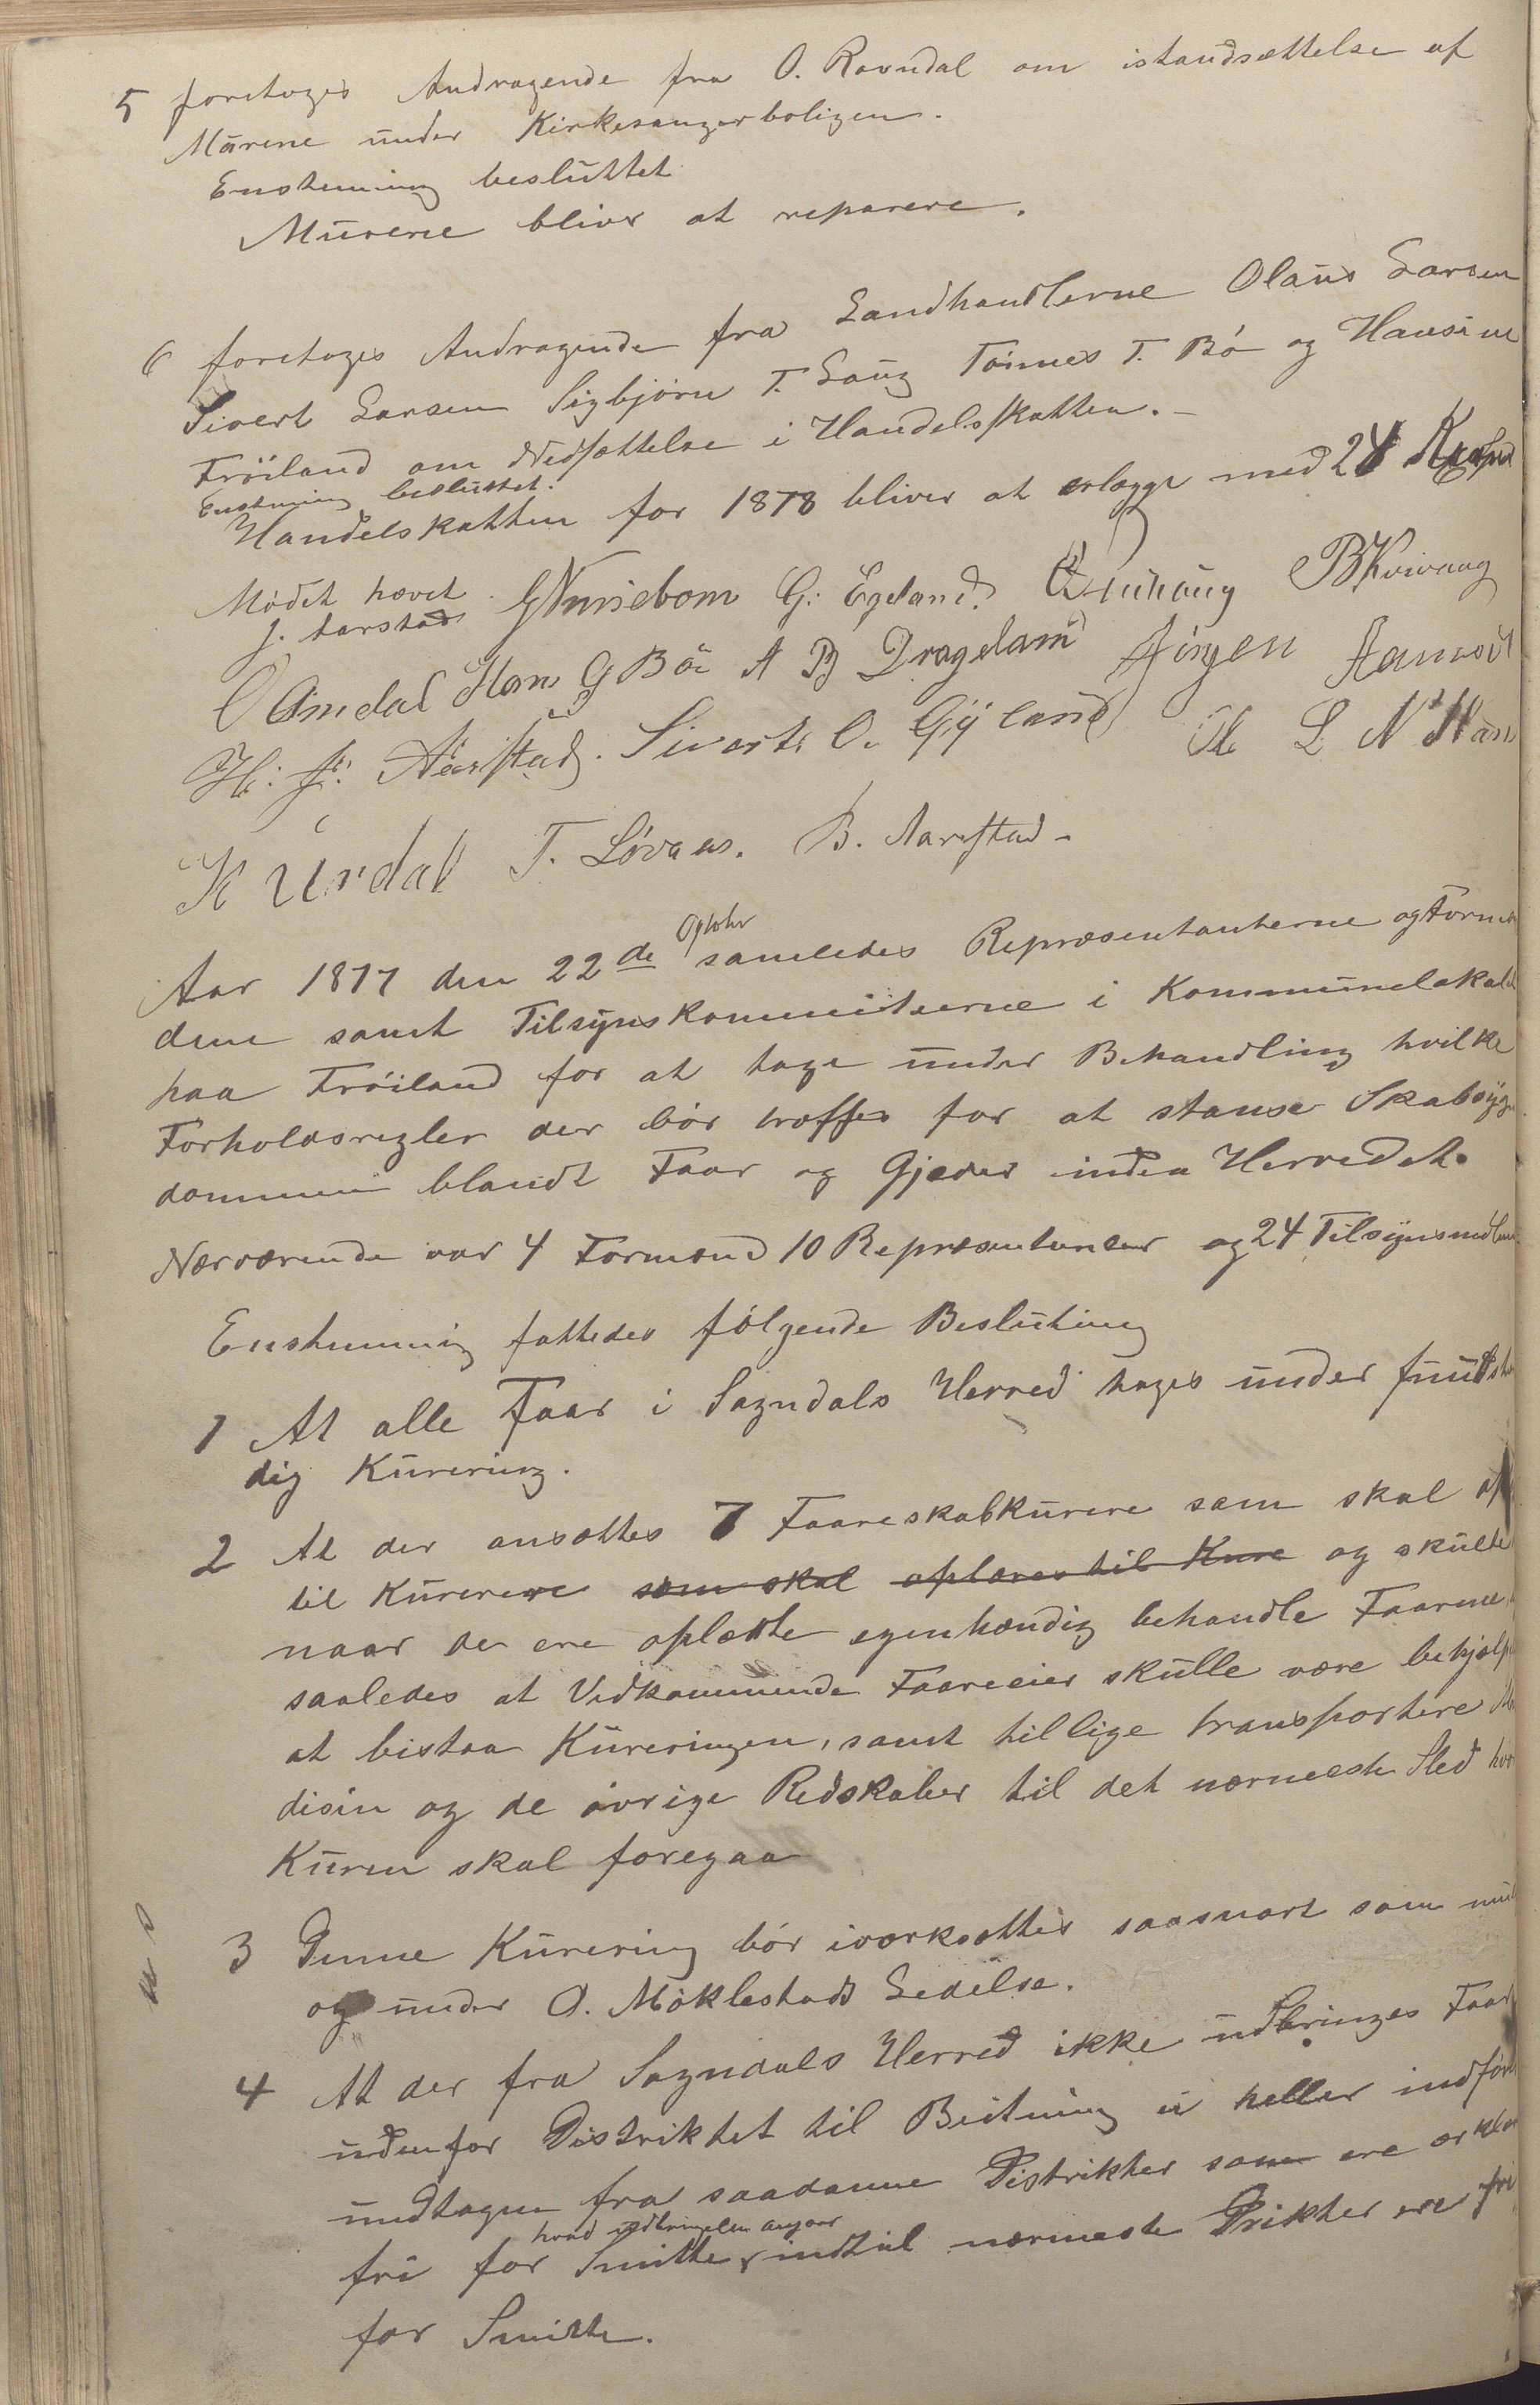 5 foretoges Andragende fra O. Ravndal om istandsættelse af
Mürene ünder Kirkesangerboligen.
Enstemmig beslüttet
Mürene blive at reparere.
6 foretoges Andragende fra Landhandlerne Olaüs Larsen
Sivert Larsen Sigbjörn T. Laug Tönnes T. Bö og Hansine
Fröiland om Nedsættelse i Handelsskatten.
Enstemmig beslüttet.
Handelskatten for 1878 bliver at erlægge med 24
Mödet hævet.
J. Aarstad G. Egeland. B Kvivang
O Omdal Hans G Bö A B Drageland Jörgen
H. J. Aarstad. Sivert O. Gyland L N
K Urdal T. Lövaas. B. Aarstad
Aar 1877 den 22de Optober samledes Repræsentanterne og Formæn
dene samt Tilsynskommiteerne i Kommünelokalet
paa Fröiland for at tage ünder Behandling hvilke
Forholdsregler der bör træffes for at stanse Skabsyg
dommen blandt Faar og Gjeder inden Herredet.
Nærværende var 4 Formænd 10 Repræsentanter og 24 Tilsynsmedlem
Enstemmig fattedes fölgende Beslütning
1 At alle Faar i Sogndals Herred tages ünder füldstæn
dig Kürering.
2 At der ansættes 7 Faareskabkürere som skal
til Kürerere som skal oplæres til Kure og skülle
naar de ere oplærte egenhændig behandle Faarene
saaledes at Vedkommende Faareeier skülle være behjælp
at bistaa Küreringen, samt tillige transportere
disin og de övrige Redskaber til det nærmeste Sted hvor
Küren skal foregaa
3 Denne Kürering bör iværksættes saasnart som
og ünder O. Möklestads Ledelse.
4 At der fra Sogndals Herred ikke üdbringes Faar
üdenfor Distriktet til Beitning ei heller indför
undtagen fra saadanne Distrikter som ere erklær
hvad üdbringelsen angaar
fri for Smitte, indtil nærmeste Drikter ere fri
for Smitte.